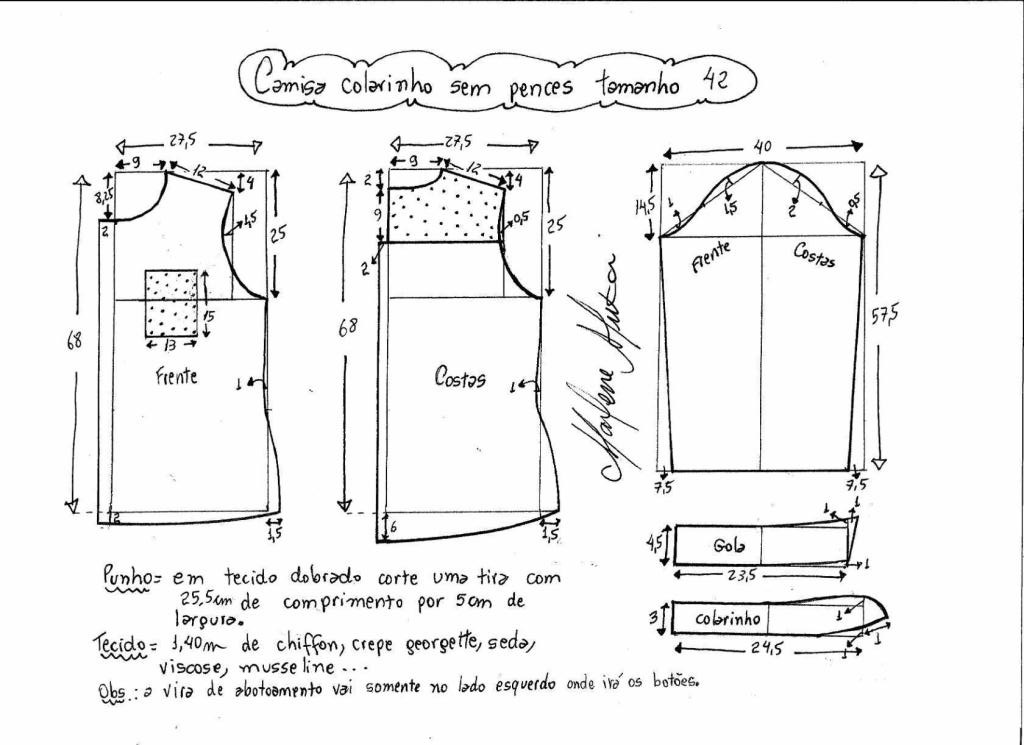 Camisa colarinho sem pences tamanho 42
27,5
9
12
4
8,25
2
1,5
25
15
13
68
Frente
1
2
1,5
27,5
9
12
4
2
9
0,5
25
2
68
Costas
1
6
1,5
40
14,5
1
1,5
2
0,5
Frente
Costas
57,5
7,5
7,5
Marlene Mukai
1
1
4,5
Gola
1
23,5
3
colarinho
1
1
24,5
1
Punho= em tecido dobrado corte uma tira com
25,5cm de comprimento por 5cm de
largura.
Tecido= 1,40m de chiffon, crepe georgette, seda,
viscose, musseline ...
Obs.: a vira de abotoamento vai somente no lado esquerdo onde irá os botões.